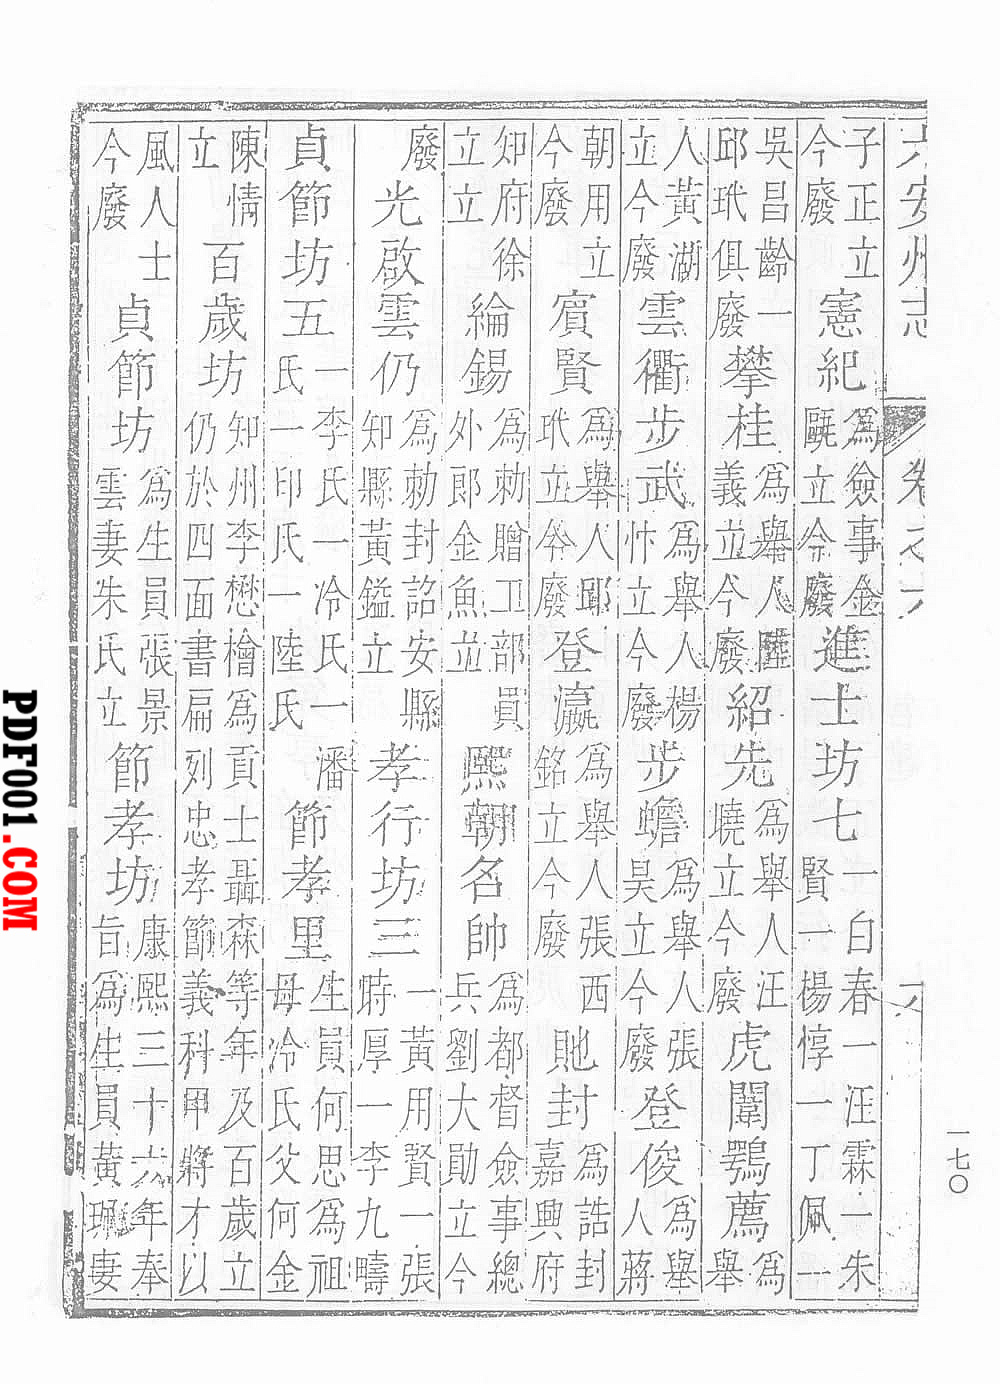 六安州志 卷之六 六
子正立今廢 憲紀 爲僉事金甌立今廢 進士坊七 一白春一汪霖一朱賢一楊惇一丁佩一
吳昌齡一邱玳俱廢 攀桂 爲舉人陸義立今廢 紹先 爲舉人汪曉立今廢 虎闈鶚薦 爲舉
人黃湖立今廢 雲衢步武 爲舉人楊忭立今廢 步蟾 爲舉人張昊立今廢 登俊 爲舉人蔣
朝用立今廢 賓賢 爲舉人邸玳立今廢 登瀛 爲舉人張西銘立今廢 貤封 爲誥封嘉興府
知府徐立立 綸錫 爲勅贈工部員外郎金魚立 熙朝名帥 爲都督僉事總兵劉大勛立今
廢 光啟雲仍 爲勅封詔安縣知縣黃鎰立 孝行坊三 一黃用賢一張時厚一李九疇
貞節坊五 一李氏一冷氏一潘氏一印氏一陸氏 節孝里 生員何思爲祖母冷氏父何金
陳情立 百歲坊 知州李懋檜爲貢士聶森等年及百歲立仍於四面書扁列忠孝節義科甲將才以
風人士今廢 貞節坊 爲生員張景雲妻朱氏立 節孝坊 康熙三十六年奉旨爲生員黃妻
一七〇
PDF001.COM